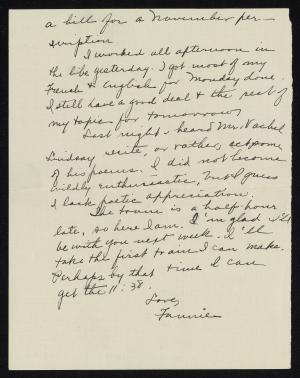 a bill for a November per-
scription.
I worked all afternoon in
the libe yesterday. I got most of my
French & English for Monday done.
I still have a good deal & the rest of
my topic for tomorrow.
Last night I heard Mr. Vachel
Lindsay recite, or rather, act some
of his poems. I did not become
wildly enthusiastic, but I guess
I lack poetic appreciation.
The train is a half hour
late, so here I am. I'm glad I'll
be with you next week. I'll
take the first train I can make.
Perhaps by that time I can
get the 11:38.
Love,
Fannie